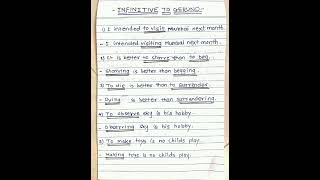 - INFINITIVE TO GERUND -
1) I intended to visit Mumbai next month.
- I intended visiting Mumbai next month.
2) It is better to starve than to beg.
- Starving is better than begging.
3) To die is better than to surrender.
- Dying is better than surrendering.
4) To observe sky is his hobby.
- Observing sky is his hobby.
5) To make toys is no childs play.
- Making toys is no childs play.